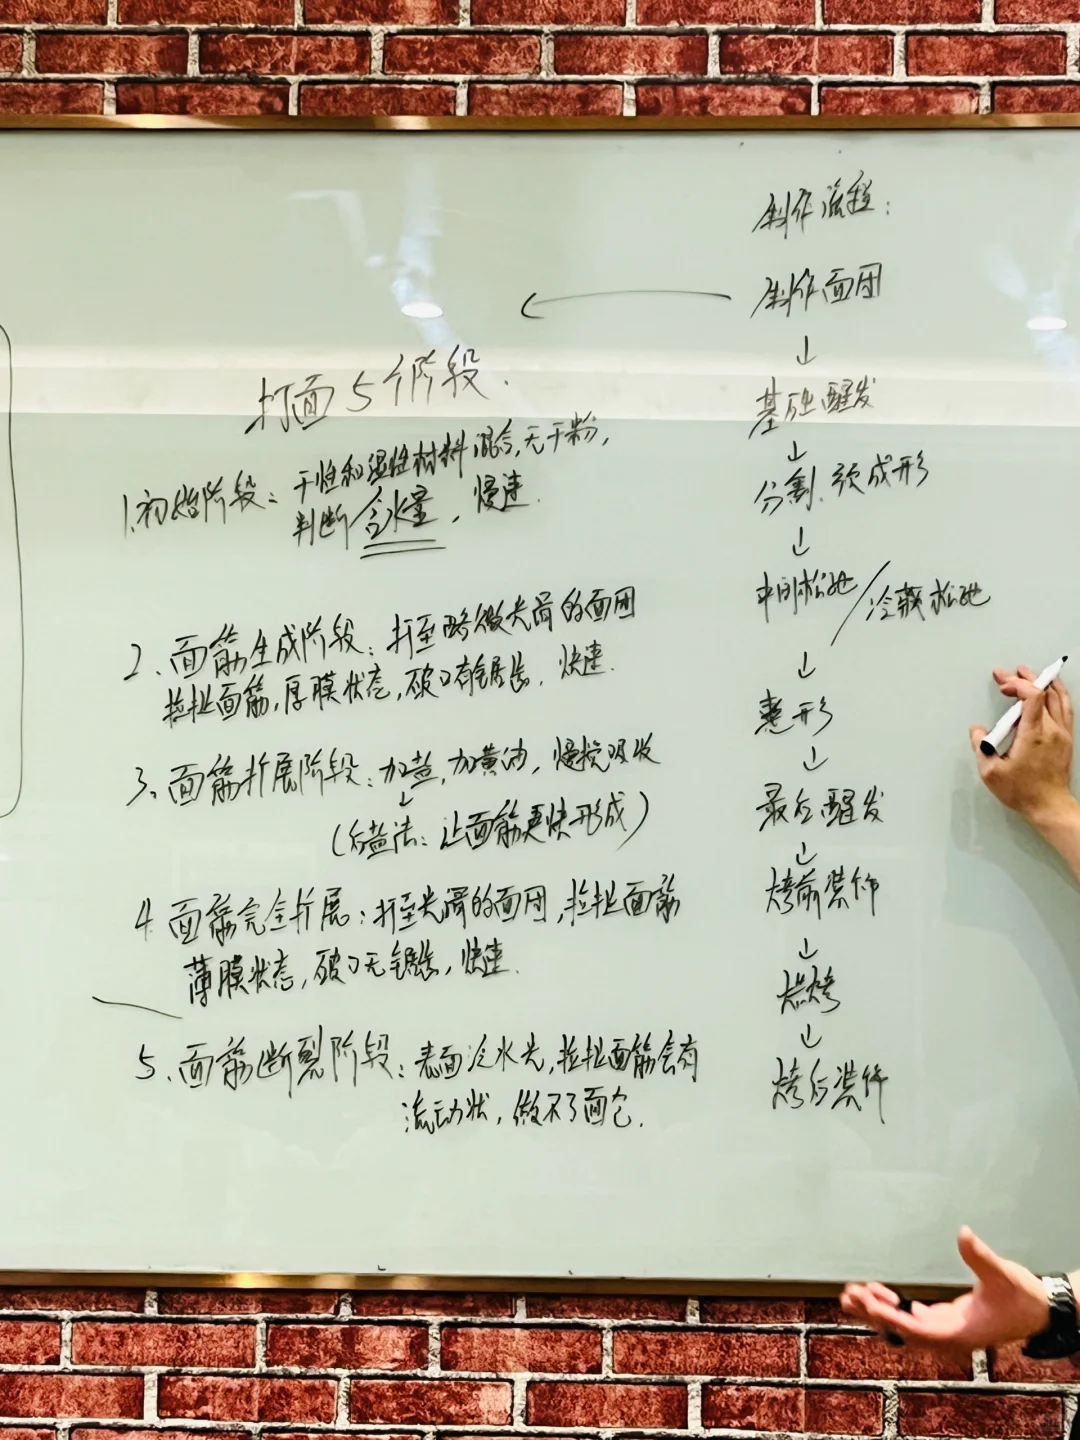 制作流程：
制作面团
↓
基础醒发
↓
分割、预成形
↓
中间松弛/冷藏松弛
↓
整形
↓
最后醒发
↓
烤前装饰
↓
烘烤
↓
烤后装饰
打面5个阶段.
1.初始阶段：干性和湿性材料混合,无干粉,
判断含水量，慢速.
2、面筋生成阶段：打至略微光滑的面团
拉扯面筋,厚膜状态,破口有锯齿，快速.
3、面筋扩展阶段：加盐,加黄油，慢搅吸收
↓
(后盐法：让面筋更快形成)
4.面筋完全扩展：打至光滑的面团,拉扯面筋
薄膜状态,破口无锯齿,快速.
5、面筋断裂阶段：表面泛水光,拉扯面筋会有
流动状，做不了面包.